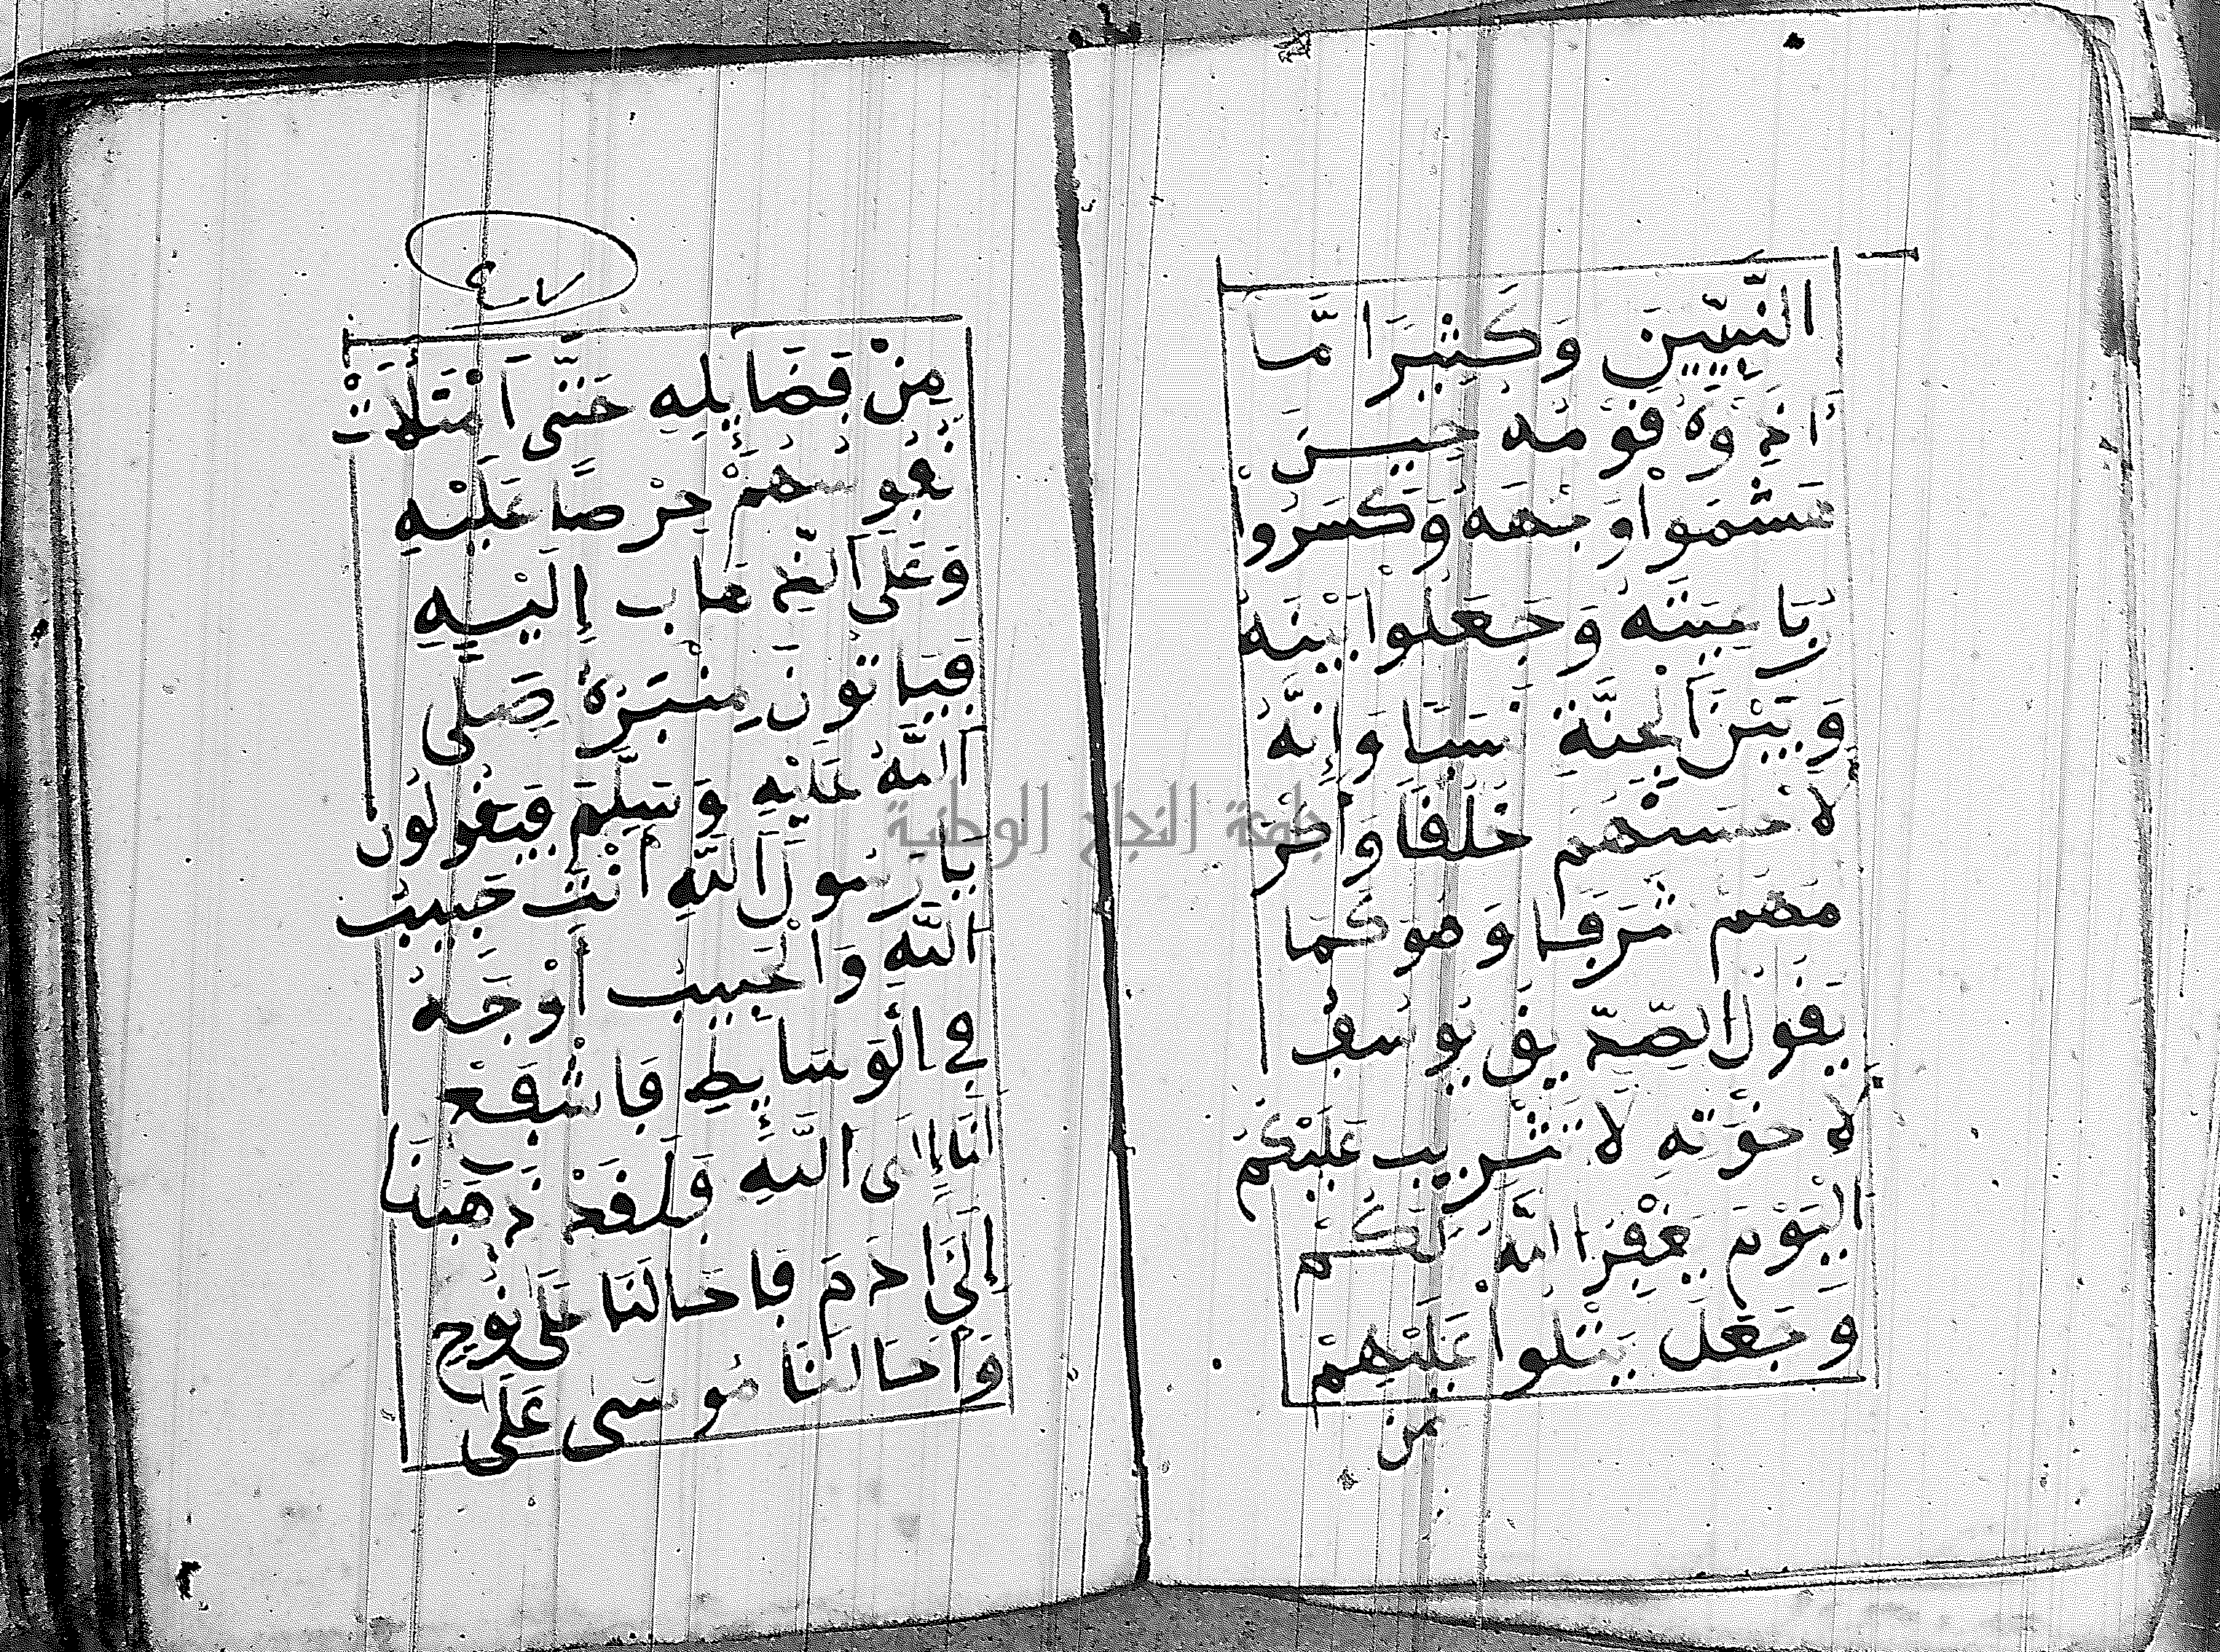 النَّبِيِّينَ وَكَثِيرًا مَّا
ءَاذَوْهُ قَوْمُهُ حِينَ
هَشَمُوا وَجْهَهُ وَكَسَرُوا
رَبَاعِيَتَهُ وَجَعَلُوا بَيْنَهُ
وَبَيْنَ الْجِنَّةِ نَسَبًا وَإِنَّهُ
لَأَحْسَنُهُمْ خَلْقًا وَأَكْرَ
مُهُمْ شَرَفًا وَهُوَ كَمَا
يَقُولُ الصِّدِّيقُ يُوسُفُ
لِإِخْوَتِهِ لَا تَثْرِيبَ عَلَيْكُمُ
الْيَوْمَ يَغْفِرُ اللَّهُ لَكُمْ
وَجَعَلَ يَتْلُوا عَلَيْهِمْ
من
مِنْ فَضَائِلِهِ حَتَّى امْتَلَأَتْ
نُفُوسُهُمْ حِرْصًا عَلَيْهِ
وَعَلَى الذَّهَابِ إِلَيْهِ
فَيَأْتُونَ مِنْبَرَهُ صَلَّى
اللَّهُ عَلَيْهِ وَسَلَّمَ فَيَقُولُونَ
يَا رَسُولَ اللَّهِ أَنْتَ حَبِيبُ
اللَّهِ وَالْحَبِيبُ أَوْجَهُ
فِي الْوَسَائِطِ فَاشْفَعْ
لَنَا إِلَى اللَّهِ فَلَقَدْ ذَهَبْنَا
إِلَى آدَمَ فَأَحَالَنَا عَلَى نُوحٍ
وَأَحَالَنَا مُوسَى عَلَى
جامعة النجاح الوطنية